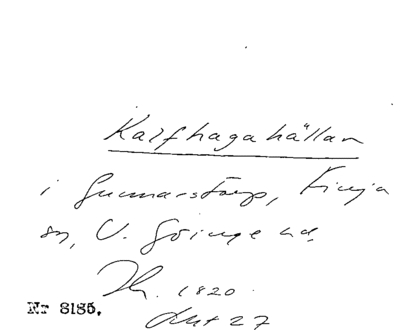 Kalfhagahällan
i Gunnarstorp, Finja
sn, V. Göinge hd.
1820.
Nr 8185.
27